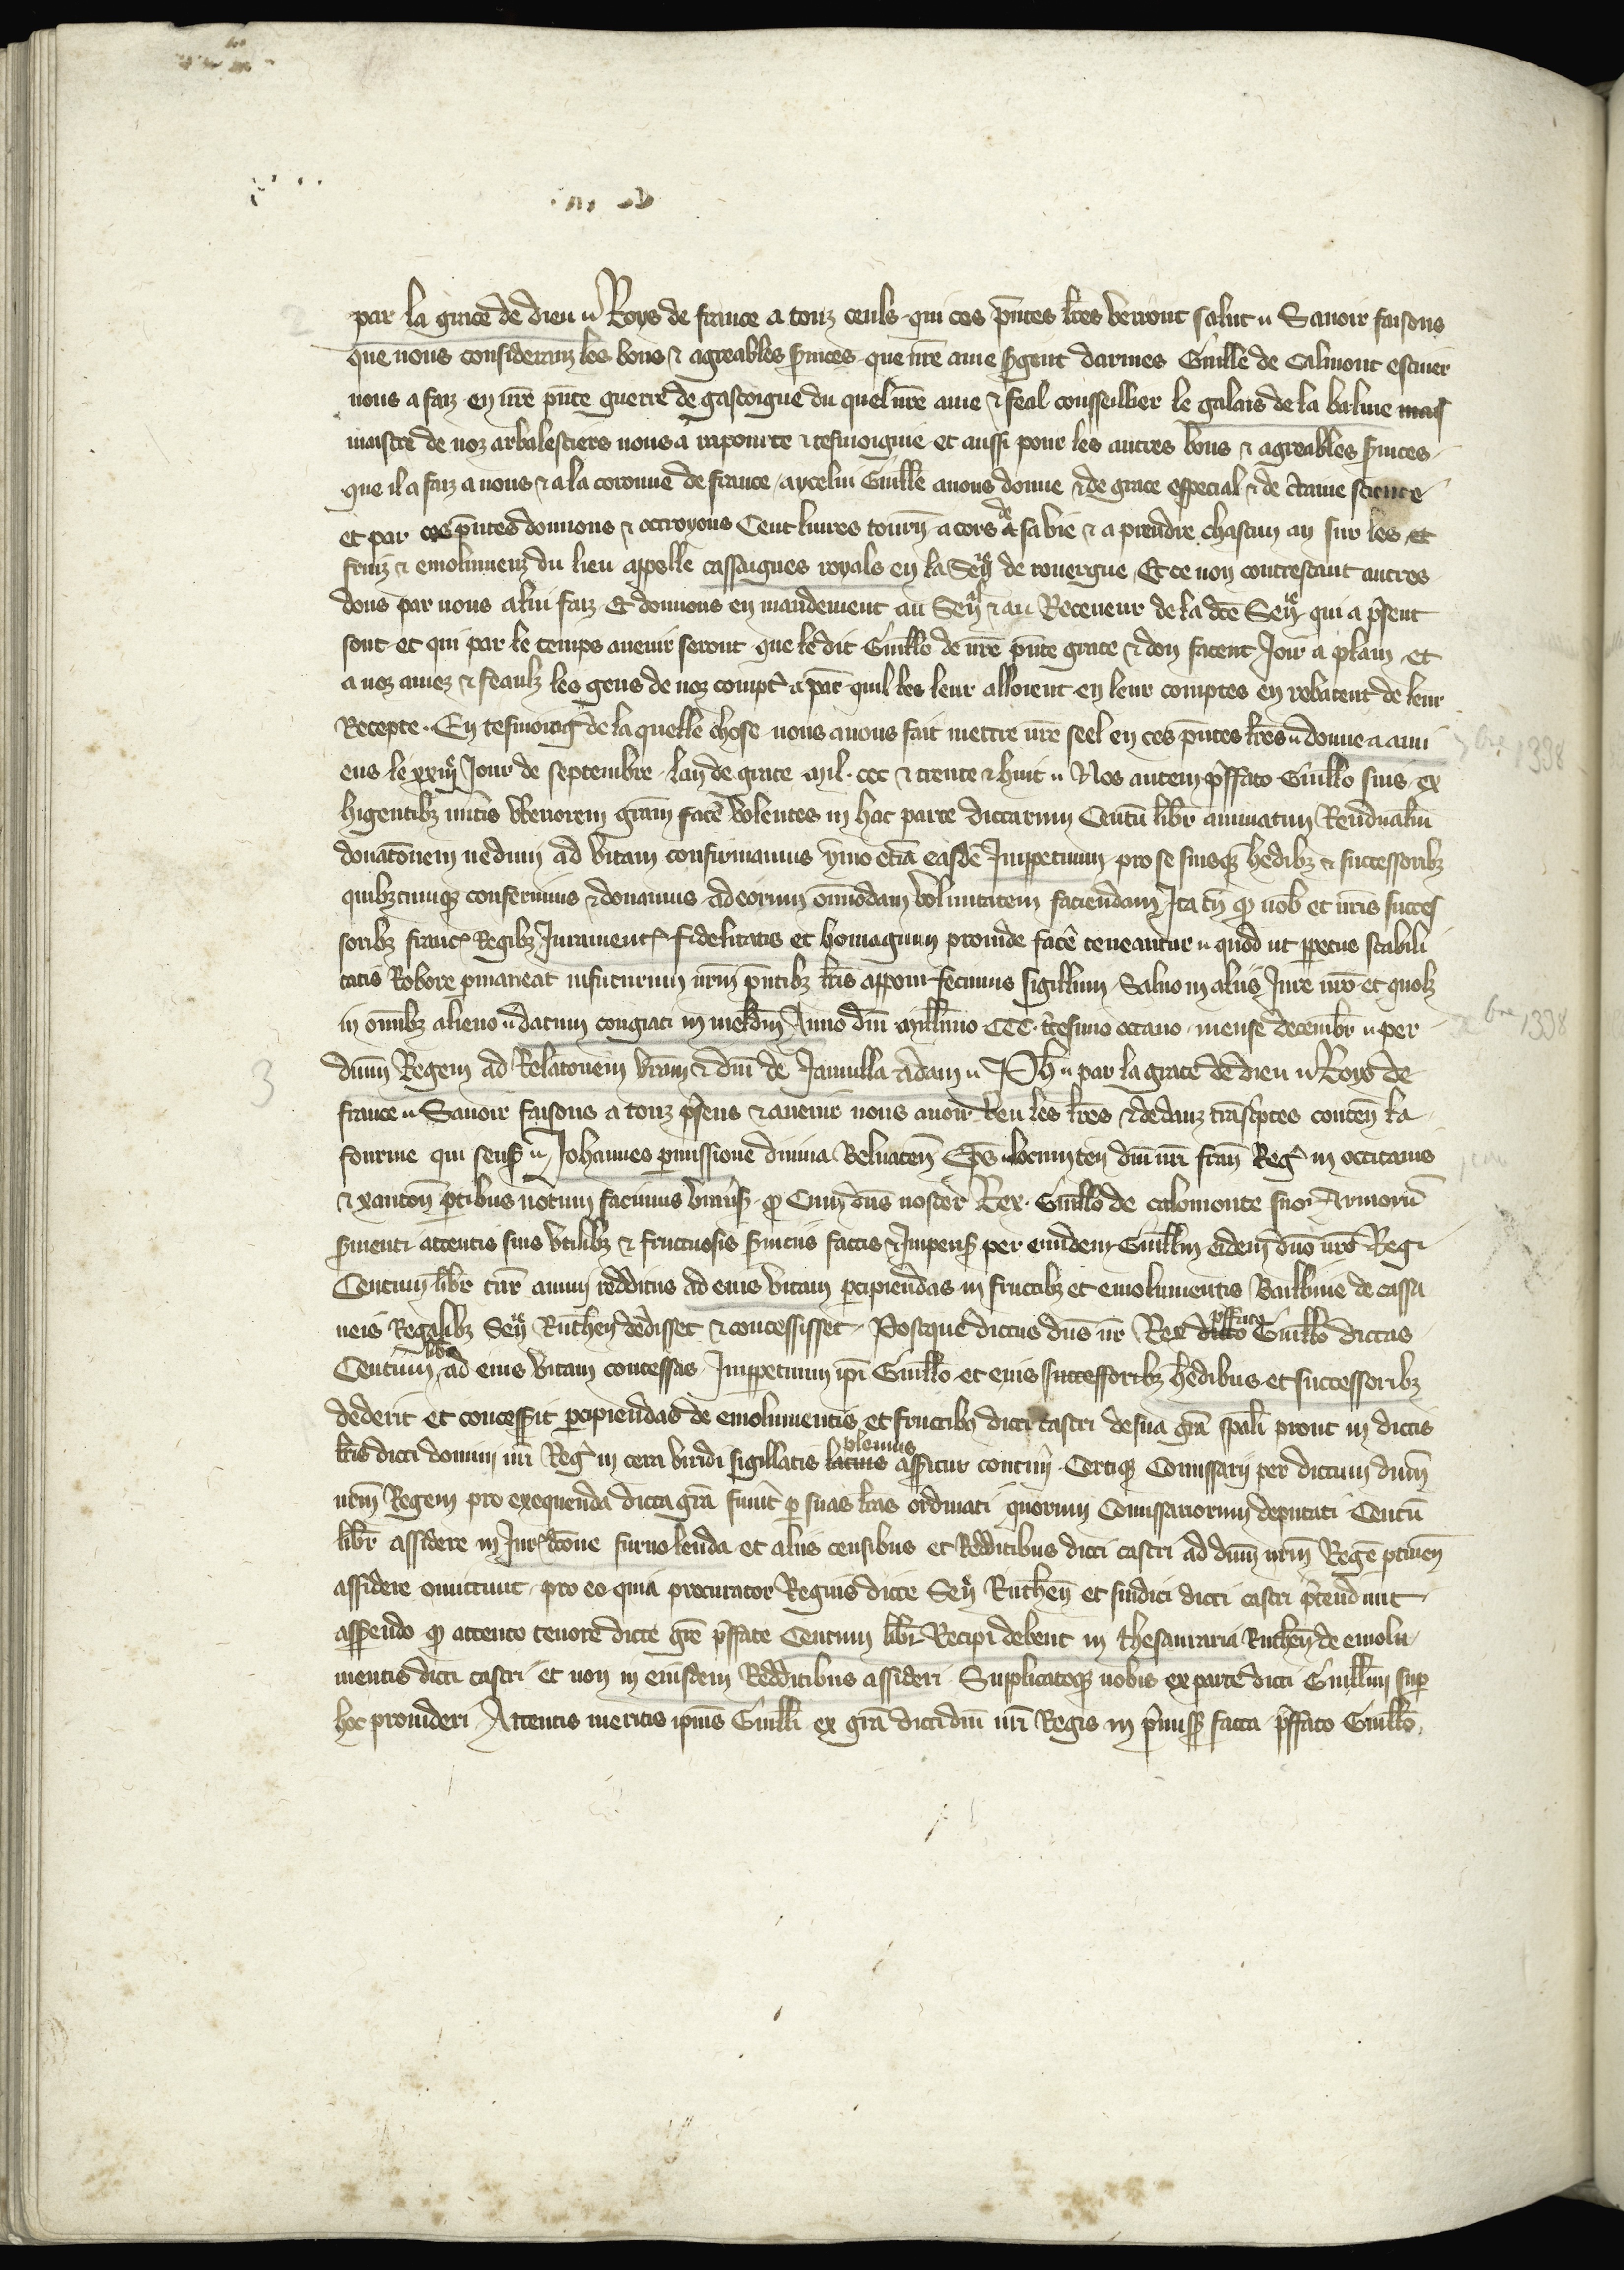 par la grace de dieu Roys de france a touz ceuls qui ces pntes lres verront salut Savoir faisons
que nous consideranz les bons & agreables svices que nre ame sgent darmes Guille de Calmont escuier
nous a faiz en nre pnte guerre de gascoigne du quel nre ame & feal conseillier le galois de la balme mas
maistre de noz arbalestiers nous a raporte & tesmoignie et aussi pour les autres bons & agreables svices
que il a faiz a nous & a la coronne de france aycelui Guille avons donne & de grace especial & de ctaine science
et par ces pntes donnons & octroyons Cent livres tourn a cors de & sa vie & a prendre chascun an sur les et
fruiz & emolumenz du lieu appelle cassaignes royals en la Sen de rouergue Et ce non contrestant autres
dons par nous a lui faiz Et donnons en mandement au Sen & au Receveur de la dce Sen qui a psent
sont et qui par le temps avenir seront que le dit Guillo de nre pnte grace & don facent Joir a plain et
a noz amez & feaulz les gens de noz compt a par quil les leur alloient en leur comptes en rebatent de leur
Recepte En tesmoing de la quelle chose nous avons fait mettre nre seel en ces pntes lres donne a ami
ens le xxiiij Jour de septembre lan de grace mil ccc & trente & huit Nos autem pffato Guillo suis ex
higentibz mitis vbenorem gram face volentes in hac parte dictarum Centu libr annuatim Rendualiu
donatonem nedum ad vitam confirmamus ymo etia easde Imppetuum pro se suisqz hedibz & successoribz
quibzcumqz conferimus & donamus ad eorum omodam voluntatem faciendam Ita tn q nob et nris succes
soribz franc Regibz Jurament fidelitatis et homagium proinde face teneantur quod ut ppetue stabili
tatis Robore pmaneat infuturum nrm pntibz lris apponi fecimus sigillum Salvo in aliis Jure nro et quolz
in omibz alieno datum congiaci in meldin Anno dni millimo CCC tcesimo octavo mense decembr per
dnm Regem ad Relatonem vram & dni de Janvilla Adam Ph par la grace de dieu Roys de
france Savoir faisons a touz psens & avenir nous avoir veu les lres & dedanz transcptes conten la
fourme qui sens Johannes pmissione divina Belvacen Eps locumten dni nri fran Reg in occitanis
& xanton ptibus notum facimus univs q Cum dns noster Rex Guillo de calomonte suo Armoru
svienti attentis suis utilibz & fructuosis svicus factis & Impens per eumdem Guillm eidem dno nro Regi
Centum libr tur annui redditus ad eius vitam pcipiendas in fructibz et emolumentis Baillivie de cassa
neis Regalibz Sen Ruthen dedisset & concessisset Postque dictus dns nr Rex dicto pffato Guillo dictas
Centum libr ad eius vitam concessas Imppetuum ipi Guillo et eius successoribz hedibus et successoribz
dederit et concesserit pcipiendas de emolumentis et fructibz dicti castri de sua gra spali prout in dictis
lris dicti domini nri Reg in cera viridi sigillatis latius plenius asseritur contin Certiqz Comissarij per dictum dnm
nrm Regem pro exequenda dicta gra fuerit p suas lras ordinati quorum Comissariorum deputati Centu
libr assidere in Jurdcone furno lenda et aliis censibus et Redditibus dicti castri ad dnm nrm Rege ptinen
assidere omittunt pro eo quia procurator Regius dicte Sen Ruthen et sindici dicti castri ptendunt
asserendo q attento tenore dicte gre pffate Centum libr Recipi debent in thesauraria Ruthen de emolu
mentis dicti castri et non in eiusdem Redditibus assideri Supplicatoqz nobis ex parte dicti Guillmi sup
hoc provideri Attentis meritis ipius Guilli ex gra dicti dni nri Regis in pmiss facta pffato Guillo
3
1338
1338